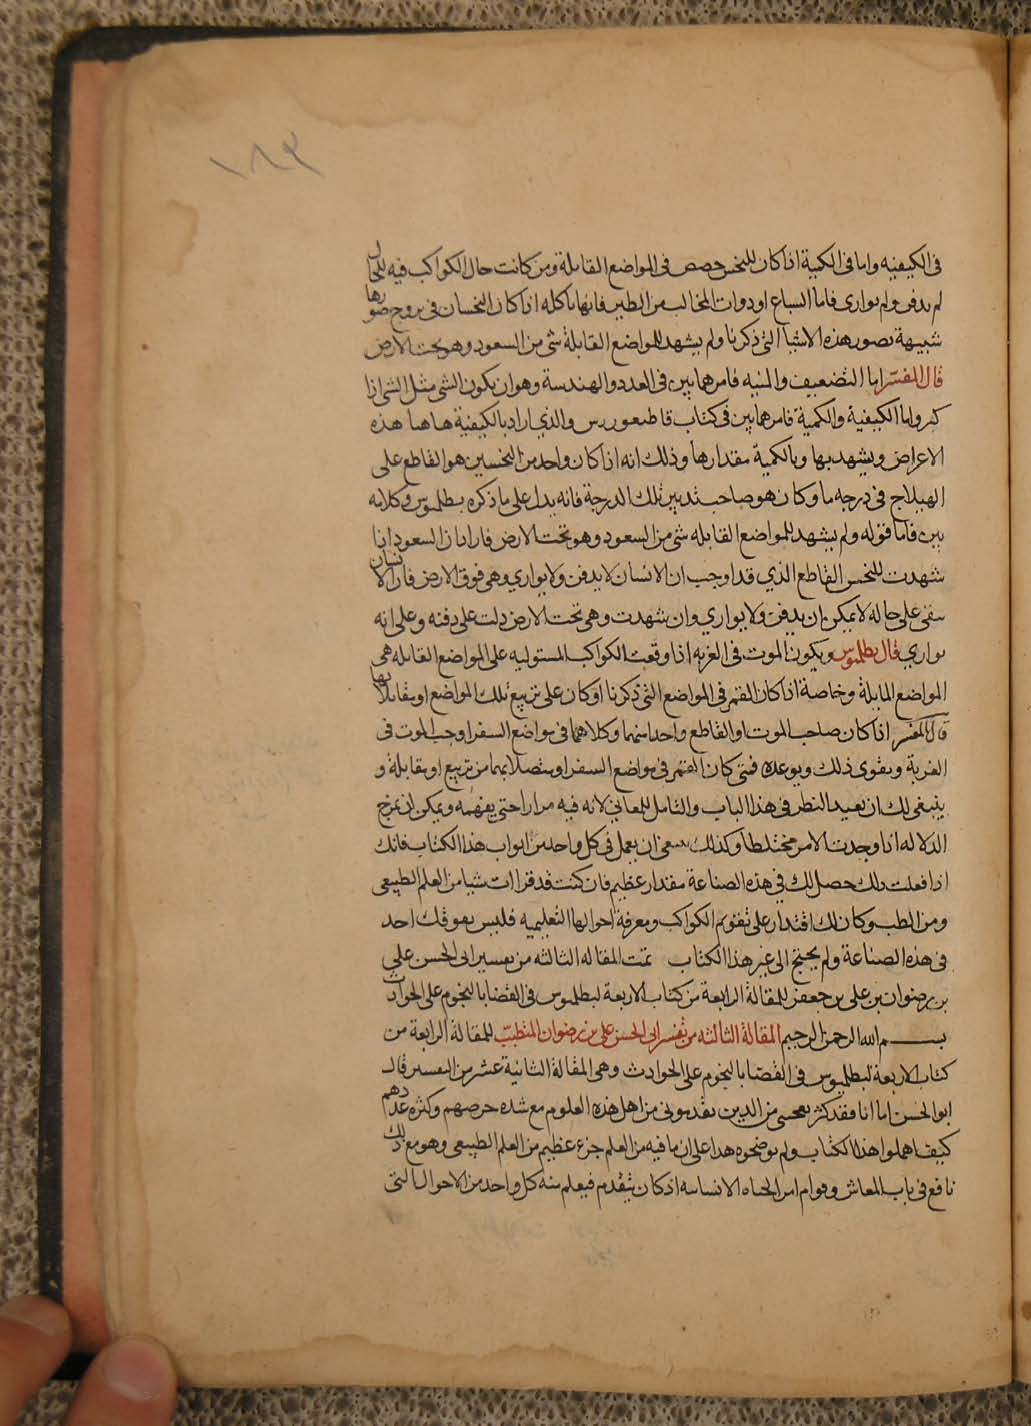 ١٨٢
فى الكيفيه واما فى الكمية اذا كان للنحس حصص فى المواضع القابلة ومن كانت حال الكواكب فيه للحال
لم يدفن ولم يوارى فاما السباع او دوات المخالب من الطير فانها تاكله اذا كان النحسان فى بروج صورها
شبيهة بصور هذه الاشيا التى ذكرنا ولم يشهد للمواضع القابلة شى من السعود وهو تحت الارض
قال المفسر اما التضعيف والمثيه فامرهما بين فى العدد والهندسة وهو ان يكون الشى مثل الشى اذا
كثر واما الكيفية والكمية فامرهما بين فى كتاب قاطيعوريس والذي اراد بالكيفية هاهنا هذه
الاعراض ويشهد بها وبالكمية مقدارها وذلك انه اذا كان واحد من النحسين هو القاطع على
الهيلاج فى درجه ما وكان هو صاحب تدبير تلك الدرجة فانه يدل على ما ذكره بطلميوس وكلامه
بين فاما قوله ولم يشهد للمواضع القابله شى من السعود وهو تحت الارض فاراد ان السعود اذا
شهدت للنحس القاطع الذي قد اوجب ان الانسان لا يدفن ولا يواري وهى فوق الارض فان الانسان
يبقى على حاله لا يمكن ان يدفن ولا يواري وان شهدت وهى تحت الارض دلت على دفنه وعلى انه
يواري قال بطلميوس ويكون الموت فى الغربه اذا وقعت الكواكب المستوليه على المواضع القابله هى
المواضع المايلة وخاصة اذا كان القمر فى المواضع التى ذكرنا او كان على تربيع تلك المواضع او مقابلاتها
قال المفسر اذا كان صاحب الموت او القاطع واحدا منهما وكلاهما فى مواضع السفر اوجب الموت فى
الغربة ويقوى ذلك ويوعده فمتى كان القمر فى مواضع السفر او متصلا بهما من تربيع او مقابلة و
ينبغى لك ان تعيد النظر فى هذا الباب والتامل للمعاني لانه فيه مرارا حتى يفهمه ويمكن ان تمزج
الدلاله اذا وجدت الامر مختلطا وكذلك ينبغى ان يعمل فى كل واحد من ابواب هذا الكتاب فانك
اذا فعلت ذلك حصل لك فى هذه الصناعة مقدار عظيم فان كنت قد قرات شيا من العلم الطبيعى
ومن الطب وكان لك اقتدار على تقويم الكواكب ومعرفة احوالها التعليميه فليس يفوقك احد
فى هذه الصناعة ولم يحتج الى غير هذا الكتاب تمت المقاله الثالثه من تفسير ابى الحسن على
بن رضوان بن على بن جعفر للمقالة الرابعة من كتاب الاربعة لبطلميوس فى القضايا بالنجوم على الحوادث
بسم الله الرحمن الرحيم المقالة الثالثه من تفسير ابى الحسن على بن رضوان المتطبب للمقالة الرابعة من
كتاب الاربعة لبطلميوس فى القضايا بالنجوم على الحوادث وهى المقالة الثانية عشر من التفسير قال
ابو الحسن اما انا فقد كثر تعجبى من الذين تقدمونى من اهل هذه العلوم مع شده حرصهم وكثره عددهم
كيف اهملوا هذا الكتاب ولم يوضحوه هذا على ان ما فيه من العلم جزء عظيم من العلم الطبيعى وهو مع ذلك
نافع فى باب المعاش وقوام امر الحياه الانسانيه اذ كان يتقدم فيعلم منه كل واحد من الاحوال التى